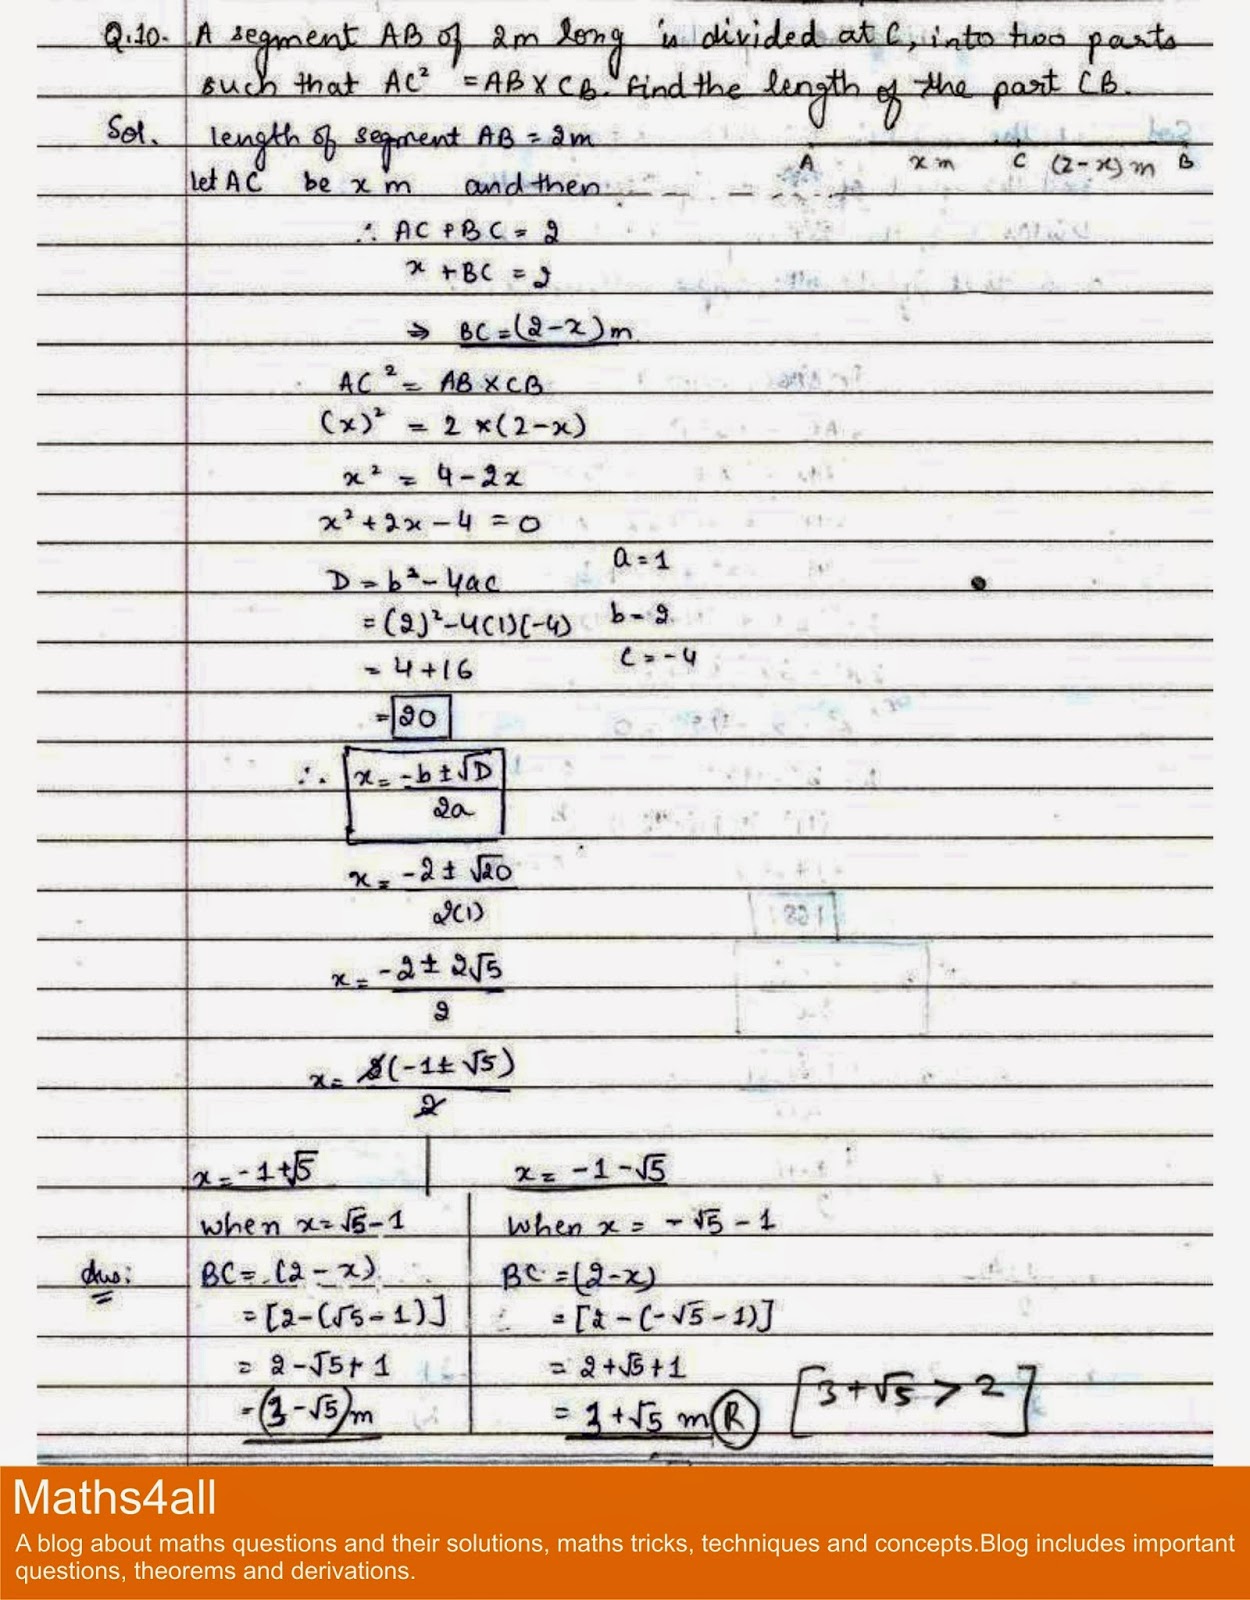 Q.10. A segment AB of 2m long is divided at C, into two parts
such that AC² = AB X CB. Find the length of the part CB.
Sol. length of segment AB = 2m
A x m C (2-x) m B
let AC be x m and then
∴ AC + BC = 2
x + BC = 2
⇒ BC = (2-x) m
AC² = AB X CB
(x)² = 2 x (2-x)
x² = 4 - 2x
x² + 2x - 4 = 0
a = 1
D = b² - 4ac
= (2)² - 4(1)(-4) b = 2
= 4 + 16 c = -4
= 20
∴ x = -b ± √D
2a
x = -2 ± √20
2(1)
x = -2 ± 2√5
2
x = 2(-1 ± √5)
2
x = -1 + √5 x = -1 - √5
when x = √5 - 1 when x = -√5 - 1
Ans: BC = (2 - x) BC = (2-x)
= [2-(√5-1)] = [2-(-√5-1)]
= 2 - √5 + 1 = 2 + √5 + 1
= (3 - √5) m = 3 + √5 m (R) [3 + √5 > 2]
Maths4all
A blog about maths questions and their solutions, maths tricks, techniques and concepts.Blog includes important
questions, theorems and derivations.